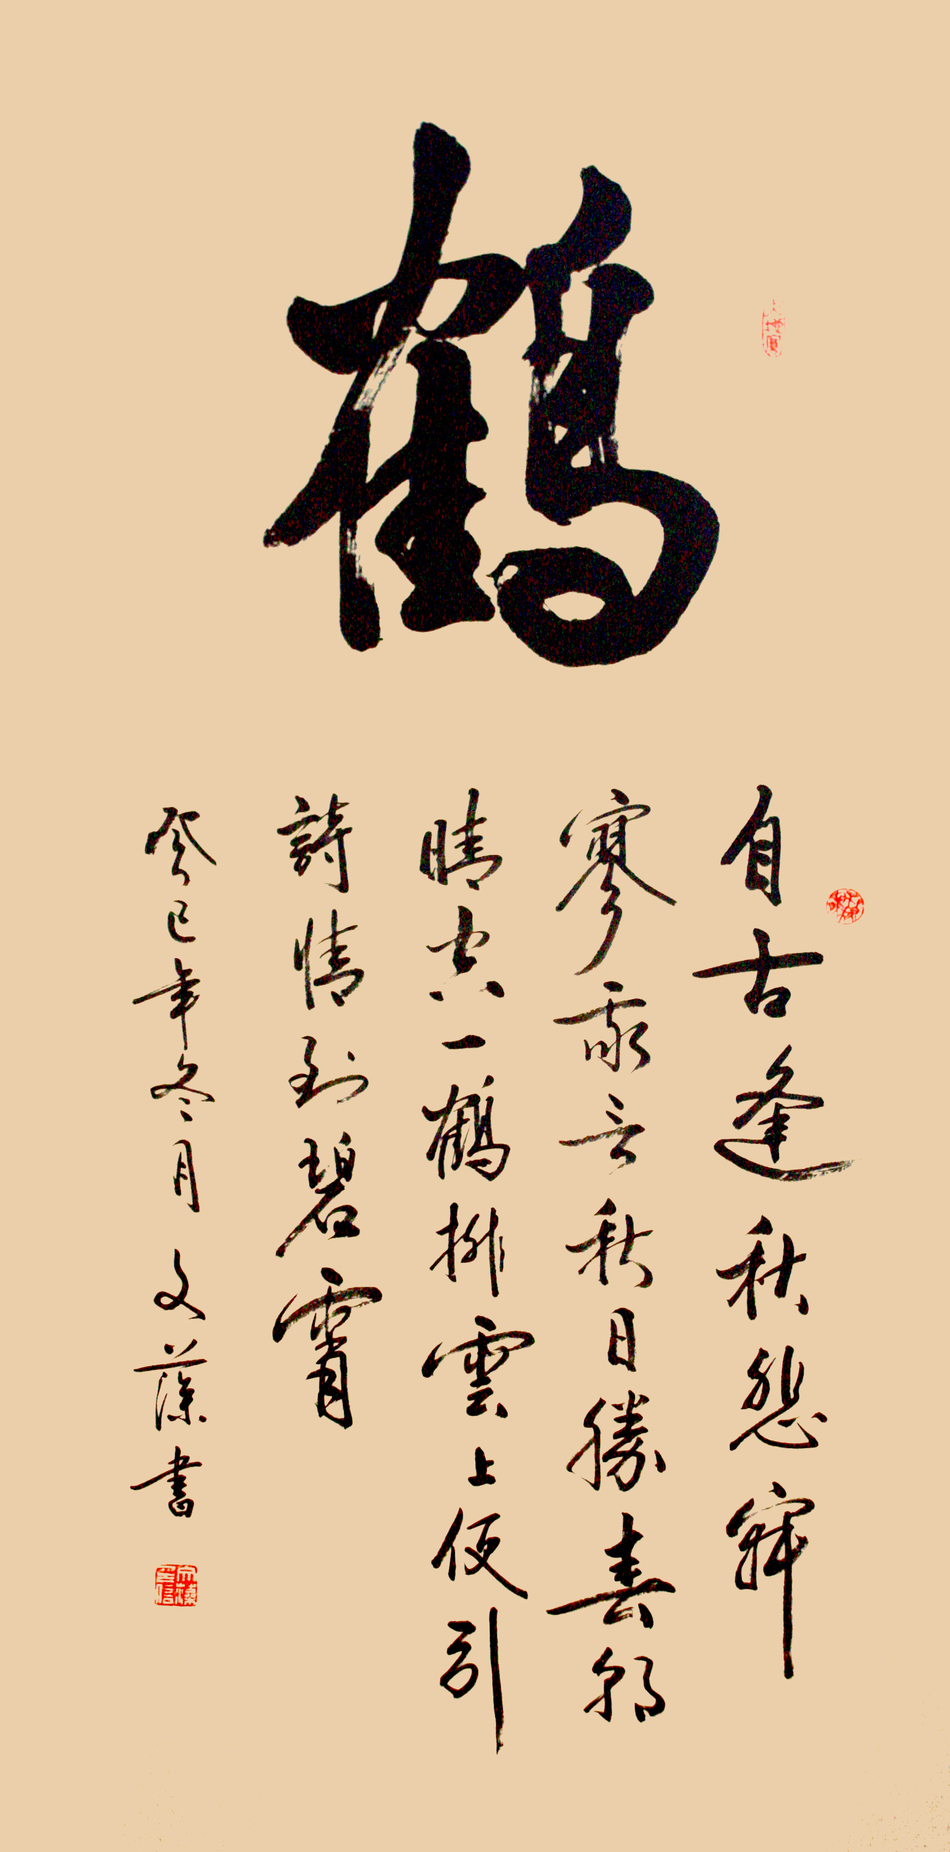 鶴
自古逢秋悲寂
寥我言秋日勝春朝
晴空一鶴排雲上便引
詩情到碧霄
癸巳年冬月 文藻書